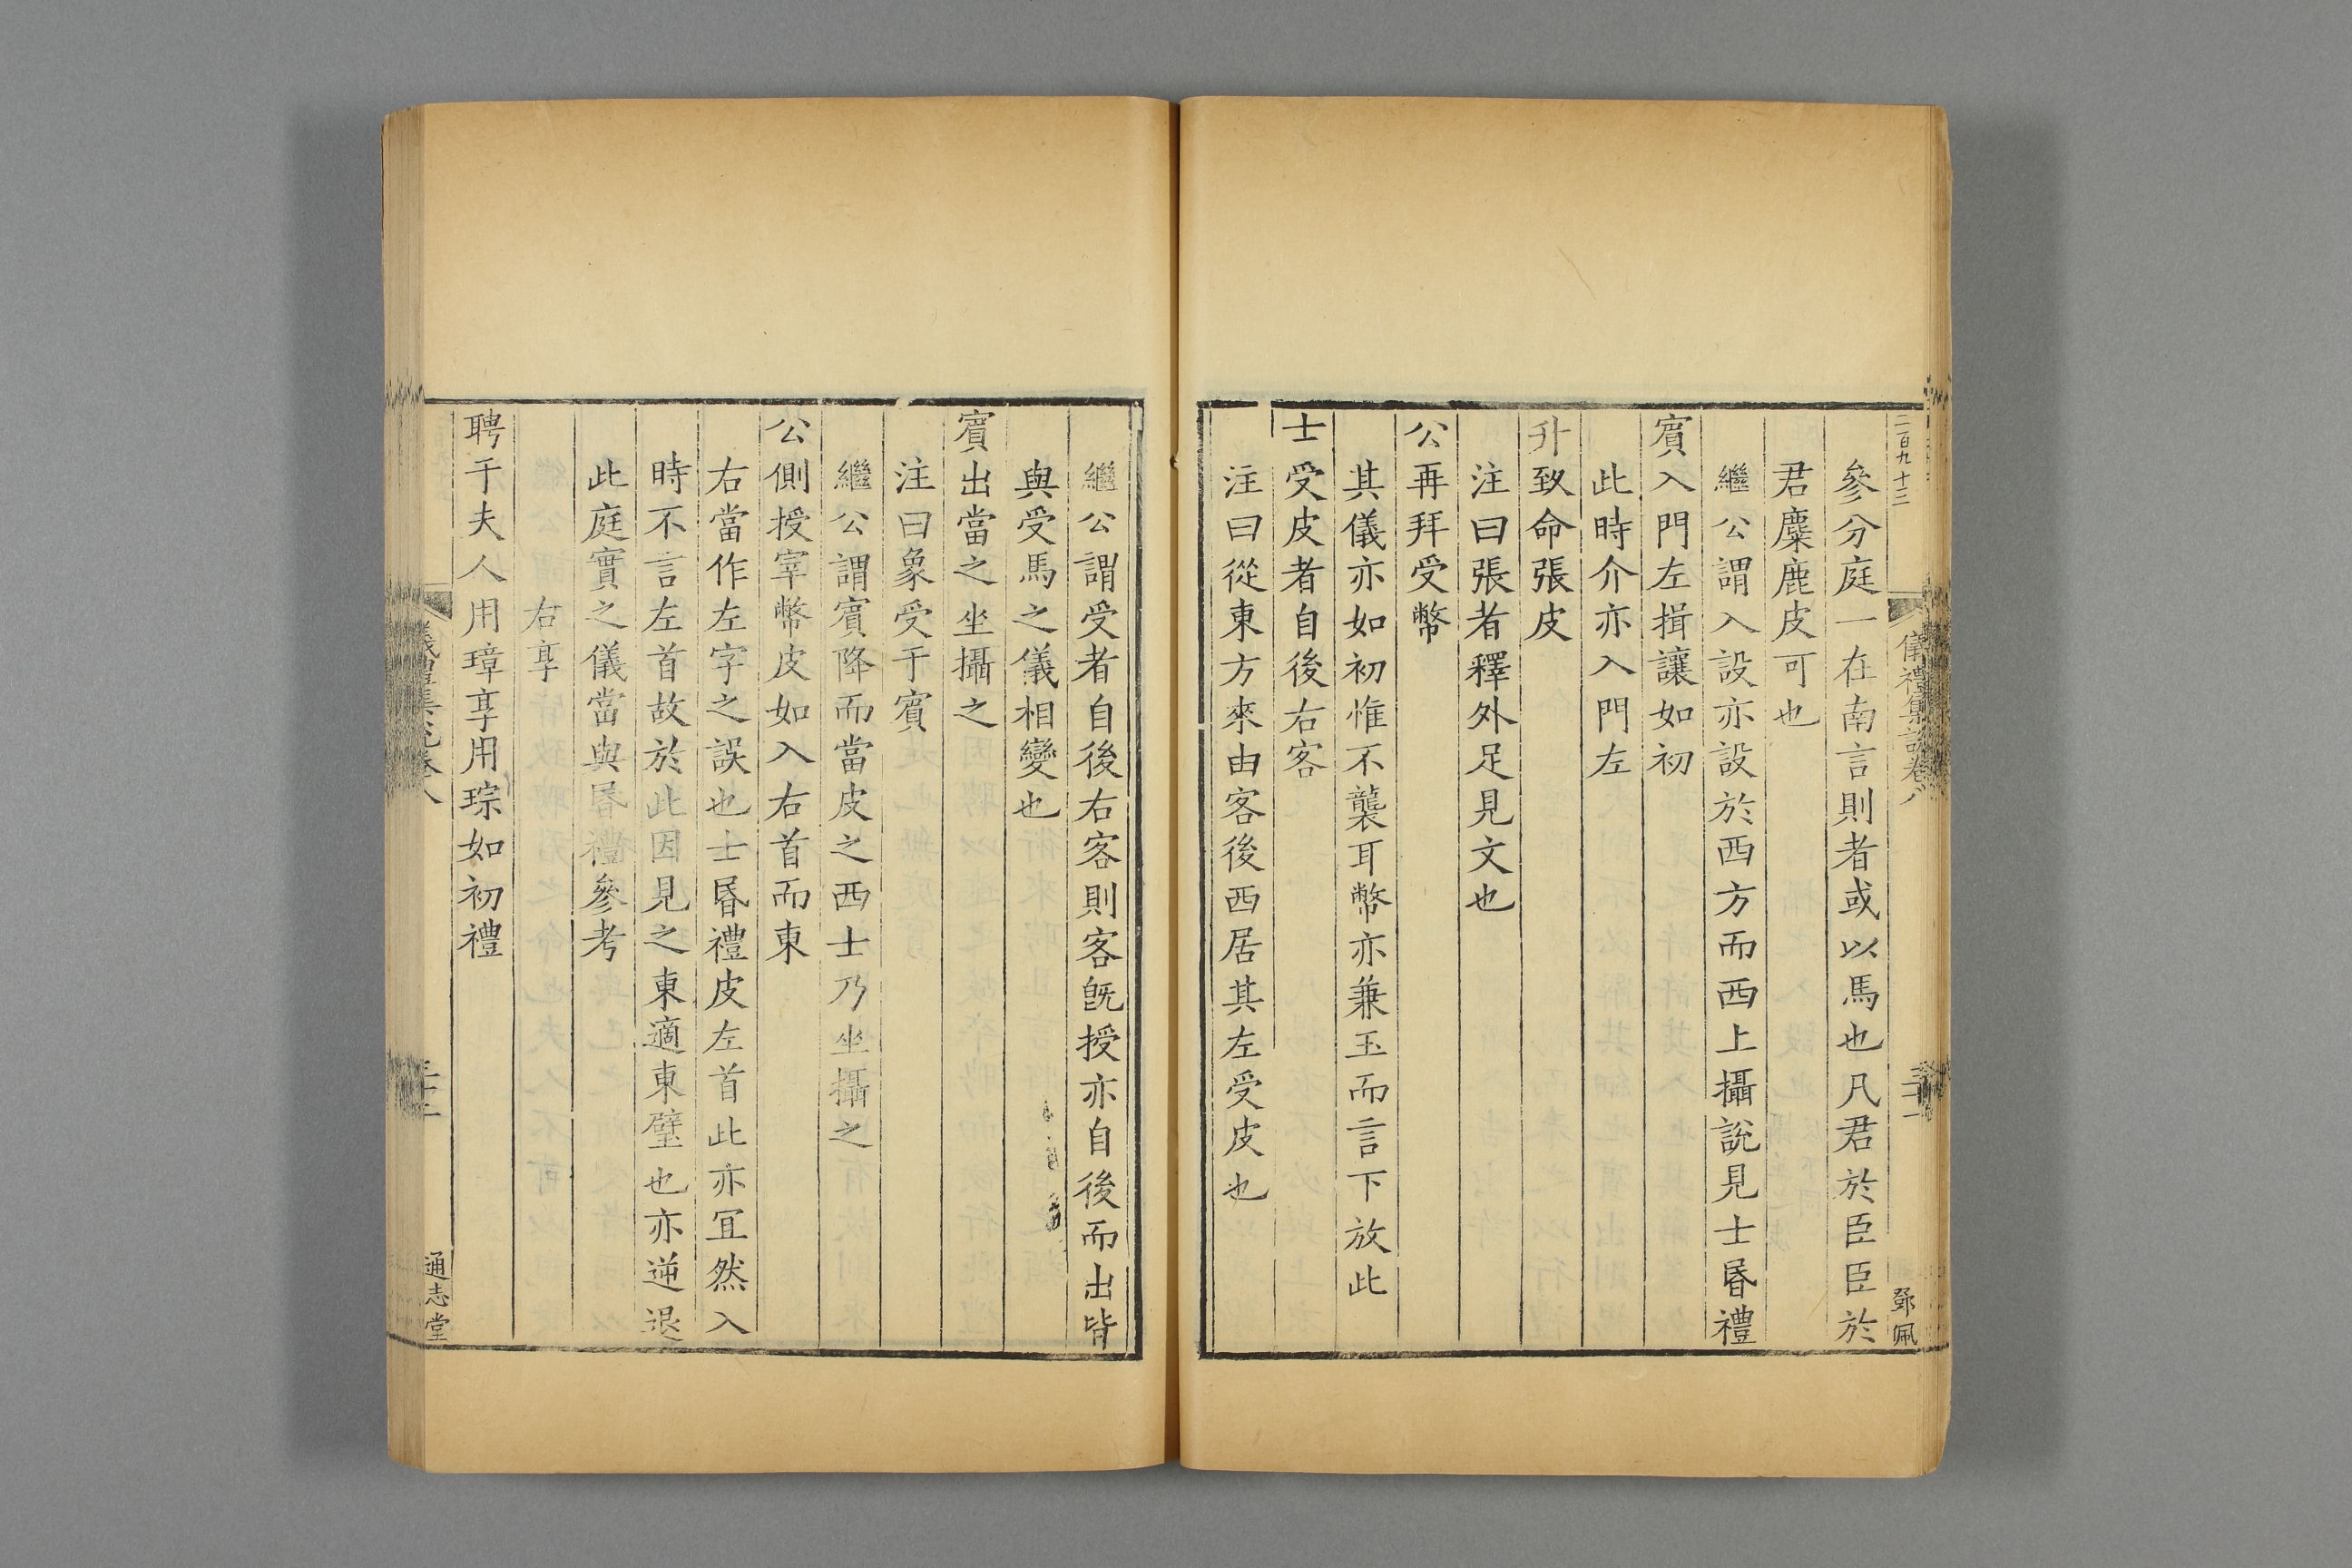 二百九十三
儀禮集說卷八
鄧佩
參分庭一在南言則者或以馬也凡君於臣臣於
君麋鹿皮可也
繼公謂入設亦設於西方而西上攝說見士昏禮
賓入門左揖讓如初
此時介亦入門左
升致命張皮
注曰張者釋外足見文也
公再拜受幣
其儀亦如初惟不襲耳幣亦兼玉而言下放此
士受皮者自後右客
注曰從東方來由客後西居其左受皮也
繼公謂受者自後右客則客旣授亦自後而出皆
與受馬之儀相變也
賓出當之坐攝之
注曰象受于賓
繼公謂賓降而當皮之西士乃坐攝之
公側授宰幣皮如入右首而東
右當作左字之誤也士昏禮皮左首此亦宜然入
時不言左首故於此因見之東適東壁也亦逆退
此庭實之儀當與昏禮參考
右享
聘于夫人用璋享用琮如初禮
儀禮集說卷八
通志堂